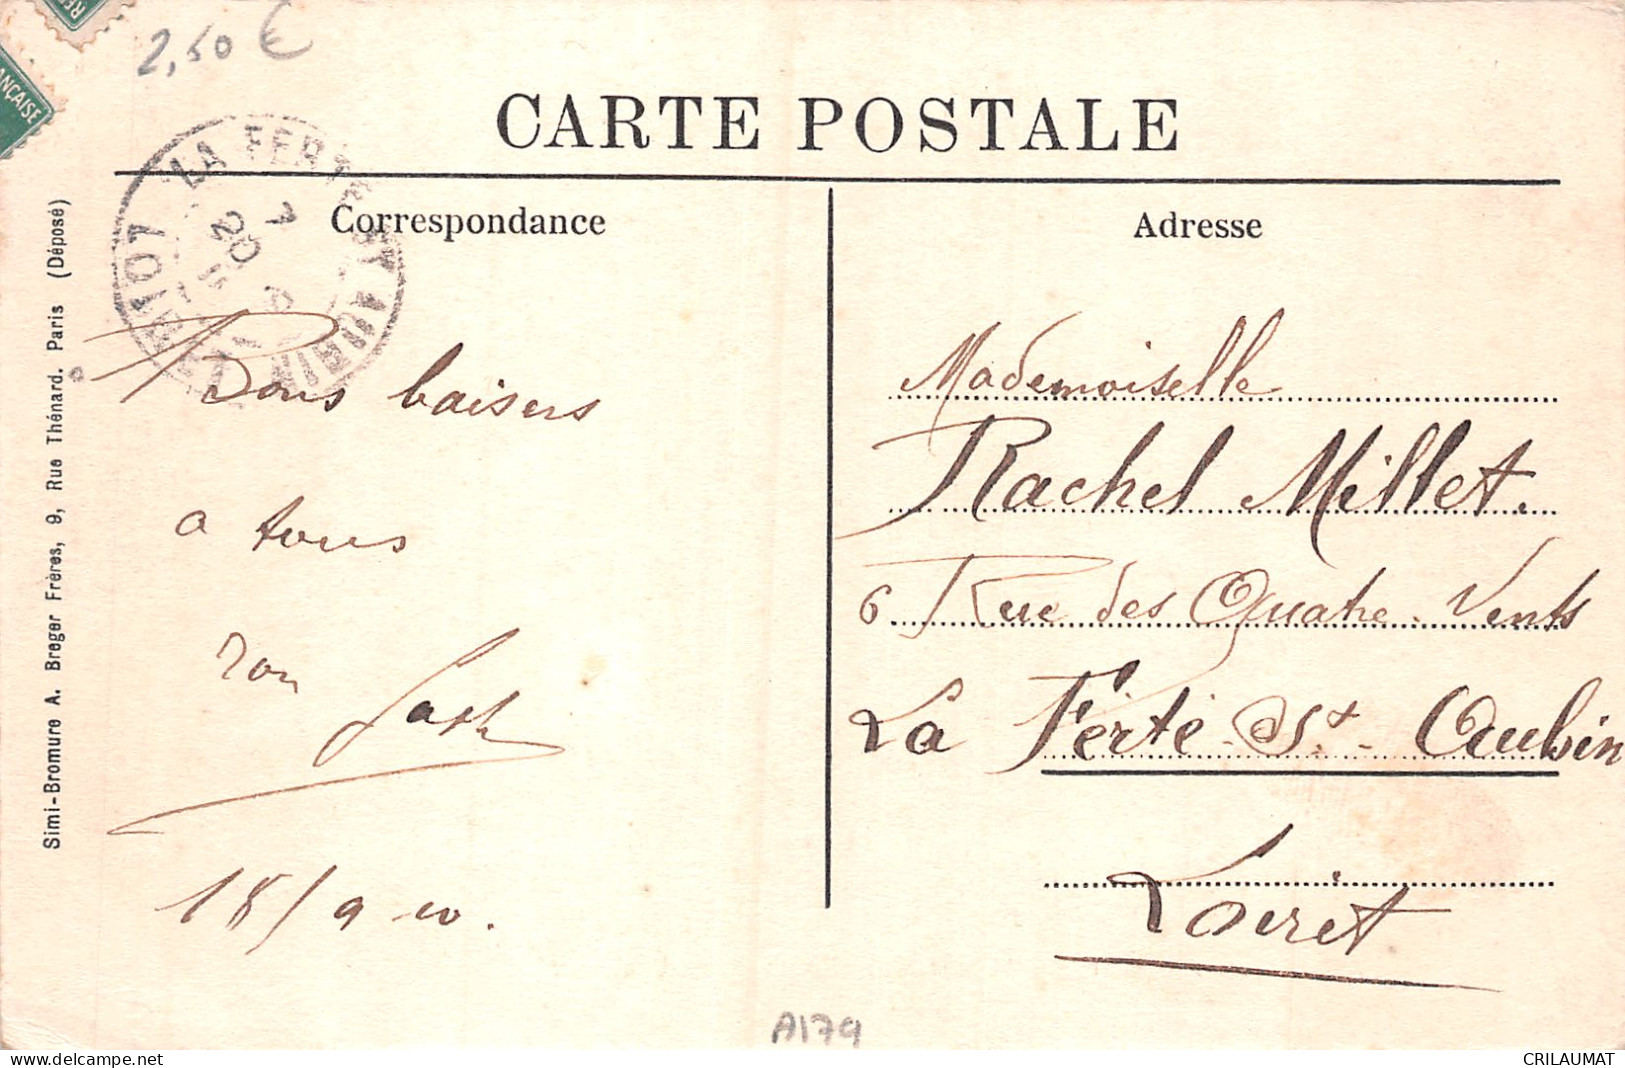 2,50 €
ANÇAISE
CARTE POSTALE
LA FERTE ST AUBIN
LOIRET
7
20
Correspondance
Adresse
Simi-Bromure A. Breger Frères, 9, Rue Thénard. Paris (Déposé)
Bons baisers
a tous
18/9
Mademoiselle
Rachel Millet.
6 Rue des Quatre Vents
La Ferté St Aubin
Loiret
A179
CRILAUMAT